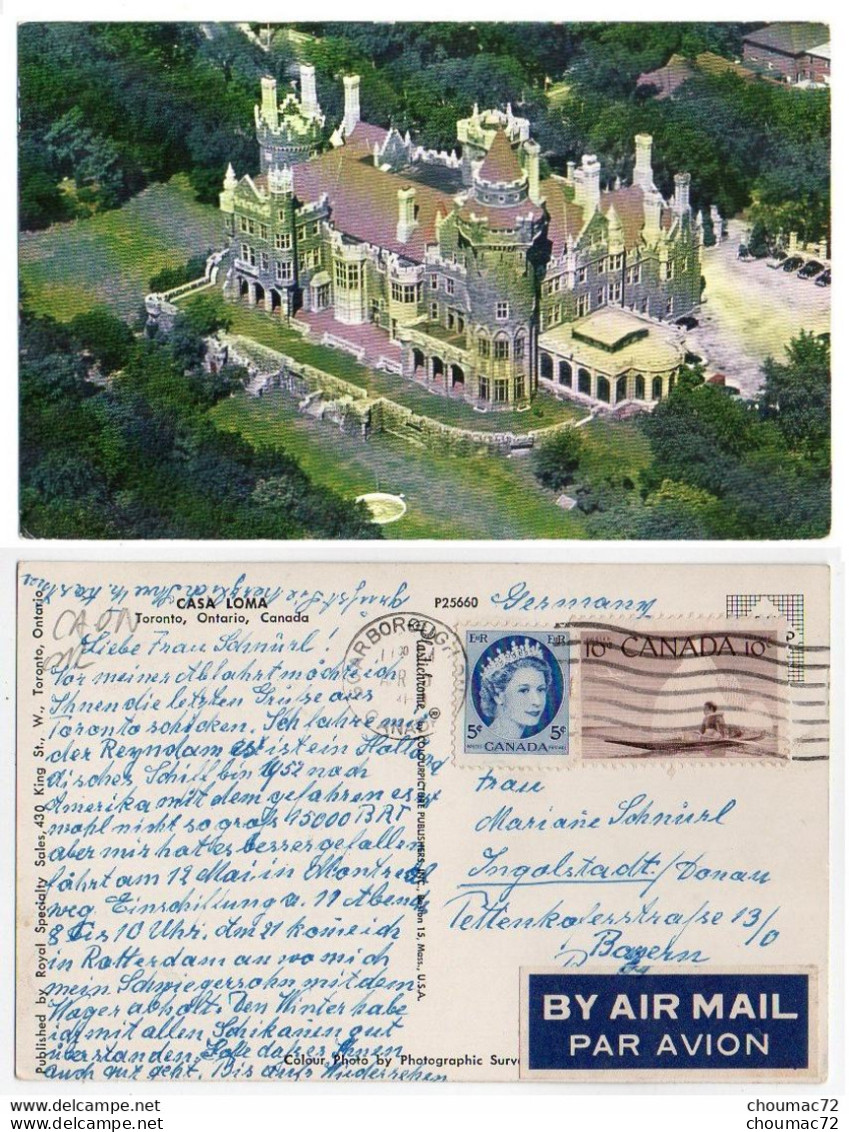 CASA LOMA
Toronto, Ontario, Canada
P25660
Germany
CAON
Liebe Frau Schnürl!
Vor meiner Abfahrt möchte ich
Ihnen die letzten Grüße aus
Toronto schicken. Ich fahre mit
der Reyndam es ist ein Hollän
disches Schiff bin 1952 nach
Amerika mit dem gefahren es ist
wohl nicht so groß 15000 BRT
aber mir hat es besser gefallen
fährt am 12 Mai in Montreal
weg. Einschiffung a. 11 Abend
8 bis 10 Uhr. Am 21 komme ich
in Rotterdam an wo mich
mein Schwiegersohn mit dem
Wagen abholt. Den Winter habe
ich mit allen Schikanen gut
überstanden. Hoffe daß es Ihnen
auch gut geht. Bis aufs Wiedersehen
Published by Royal Specialty Sales, 430 King St., W., Toronto, Ontario
Plastichrome ® by COLOURPICTURE PUBLISHERS, INC., Boston 15, Mass., U.S.A.
Colour Photo by Photographic Surve
SCARBOROUGH
E II R
E II R
5¢ 5¢
CANADA
10¢ CANADA 10¢
Frau
Mariane Schnürl
Ingolstadt/Donau
Pettenkoferstraße 13/0
Bayern
BY AIR MAIL
PAR AVION
choumac72
choumac72
choumac72
choumac72